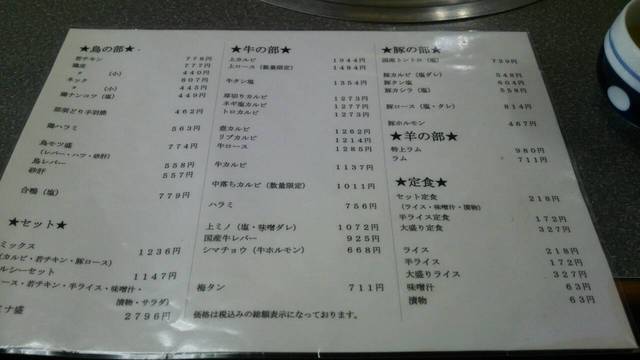 ★鳥の部★
若チキン 778円
鶏皮 777円
〃 (小) 440円
ネック 807円
〃 (小) 445円
鶏ナンコツ(塩) 449円
那須どり手羽焼 462円
鶏ハラミ 563円
鳥モツ盛 774円
(レバー・ハツ・砂肝)
鳥レバー 558円
砂肝 557円
合鴨(塩) 779円
★セット★
ミックス 1236円
(カルビ・若チキン・豚ロース)
ルシーセット 1147円
ース・若チキン・半ライス・味噌汁・
漬物・サラダ)
ミナ盛 2796円
★牛の部★
上カルビ 1944円
上ロース(数量限定) 1484円
牛タン塩 1354円
厚切りカルビ 1273円
ネギ塩カルビ 1277円
トロカルビ 1273円
壺カルビ 1262円
リブカルビ 1214円
牛ロース 1285円
牛カルビ 1137円
中落ちカルビ(数量限定) 1011円
ハラミ 756円
上ミノ(塩・味噌ダレ) 1072円
国産牛レバー 925円
シマチョウ(牛ホルモン) 668円
梅タン 711円
価格は税込みの総額表示になっております。
★豚の部★
国産トントロ(塩) 729円
豚カルビ(塩ダレ) 548円
豚タン塩 604円
豚カシラ(塩) 558円
豚ロース(塩・タレ) 814円
豚ホルモン 467円
★羊の部★
特上ラム 980円
ラム 711円
★定食★
セット定食 218円
(ライス・味噌汁・漬物)
半ライス定食 172円
大盛り定食 327円
ライス 218円
半ライス 172円
大盛りライス 327円
味噌汁 63円
漬物 63円